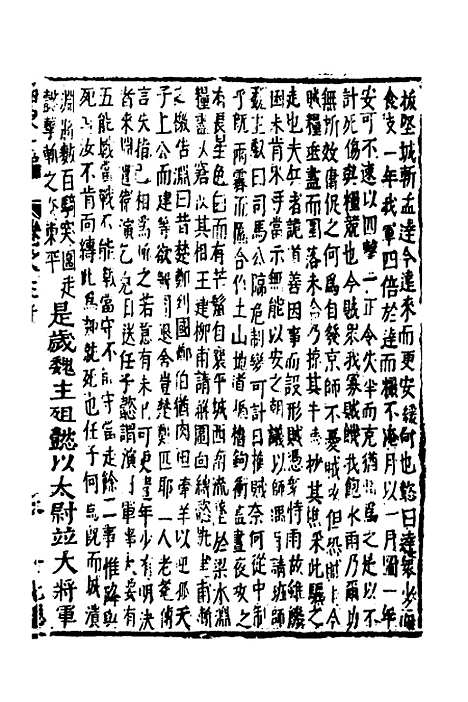 拔堅城斬孟達今遠來而更安緩何也懿曰達眾少而
食支一年我軍四倍於達而糧不淹月以一月圖一年
安可不速以四擊一正令失半而克猶當為之是以不
計死傷與糧競也今賊眾我寡賊饑我飽水雨乃爾功
無所效雖促之何為自發京師不憂賊攻但恐賊走今
賊糧垂盡而圍落未合乃掠其牛馬抄其樵采此驅之
走也夫兵者詭道善因事而設形賊憑恃雨故雖饑
困未肯束手當示無能以安之朝廷聞師遇雨咸請班師
魏主叡曰司馬公臨危制變可計日擒賊奈何從中制
乎既而雨霽而圍合作土山地道楯櫓鉤衝晝夜攻之
有長星色白有芒鬣自襄平城西南流墜於梁水淵
糧盡其窘以其相王建柳甫請解圍面縛懿斬建甫
之檄告淵曰昔楚鄭列國鄭伯猶肉袒牽羊以迎孤天
子上公而建等欲解圍退舍豈楚鄭匹耶一人老耄傳
言失指已相為斬之若意有未已可更遣年少有明決
者來淵遣衛演乞克日送任子懿謂演曰軍事大要有
五能戰當戰不能戰當守不能守當走餘二事惟降與
死耳汝不肯面縛此為決就死也任子何為既而城潰
淵將數百騎突圍走
懿擊斬之 東平
是歲魏主徂懿以太尉並大將軍